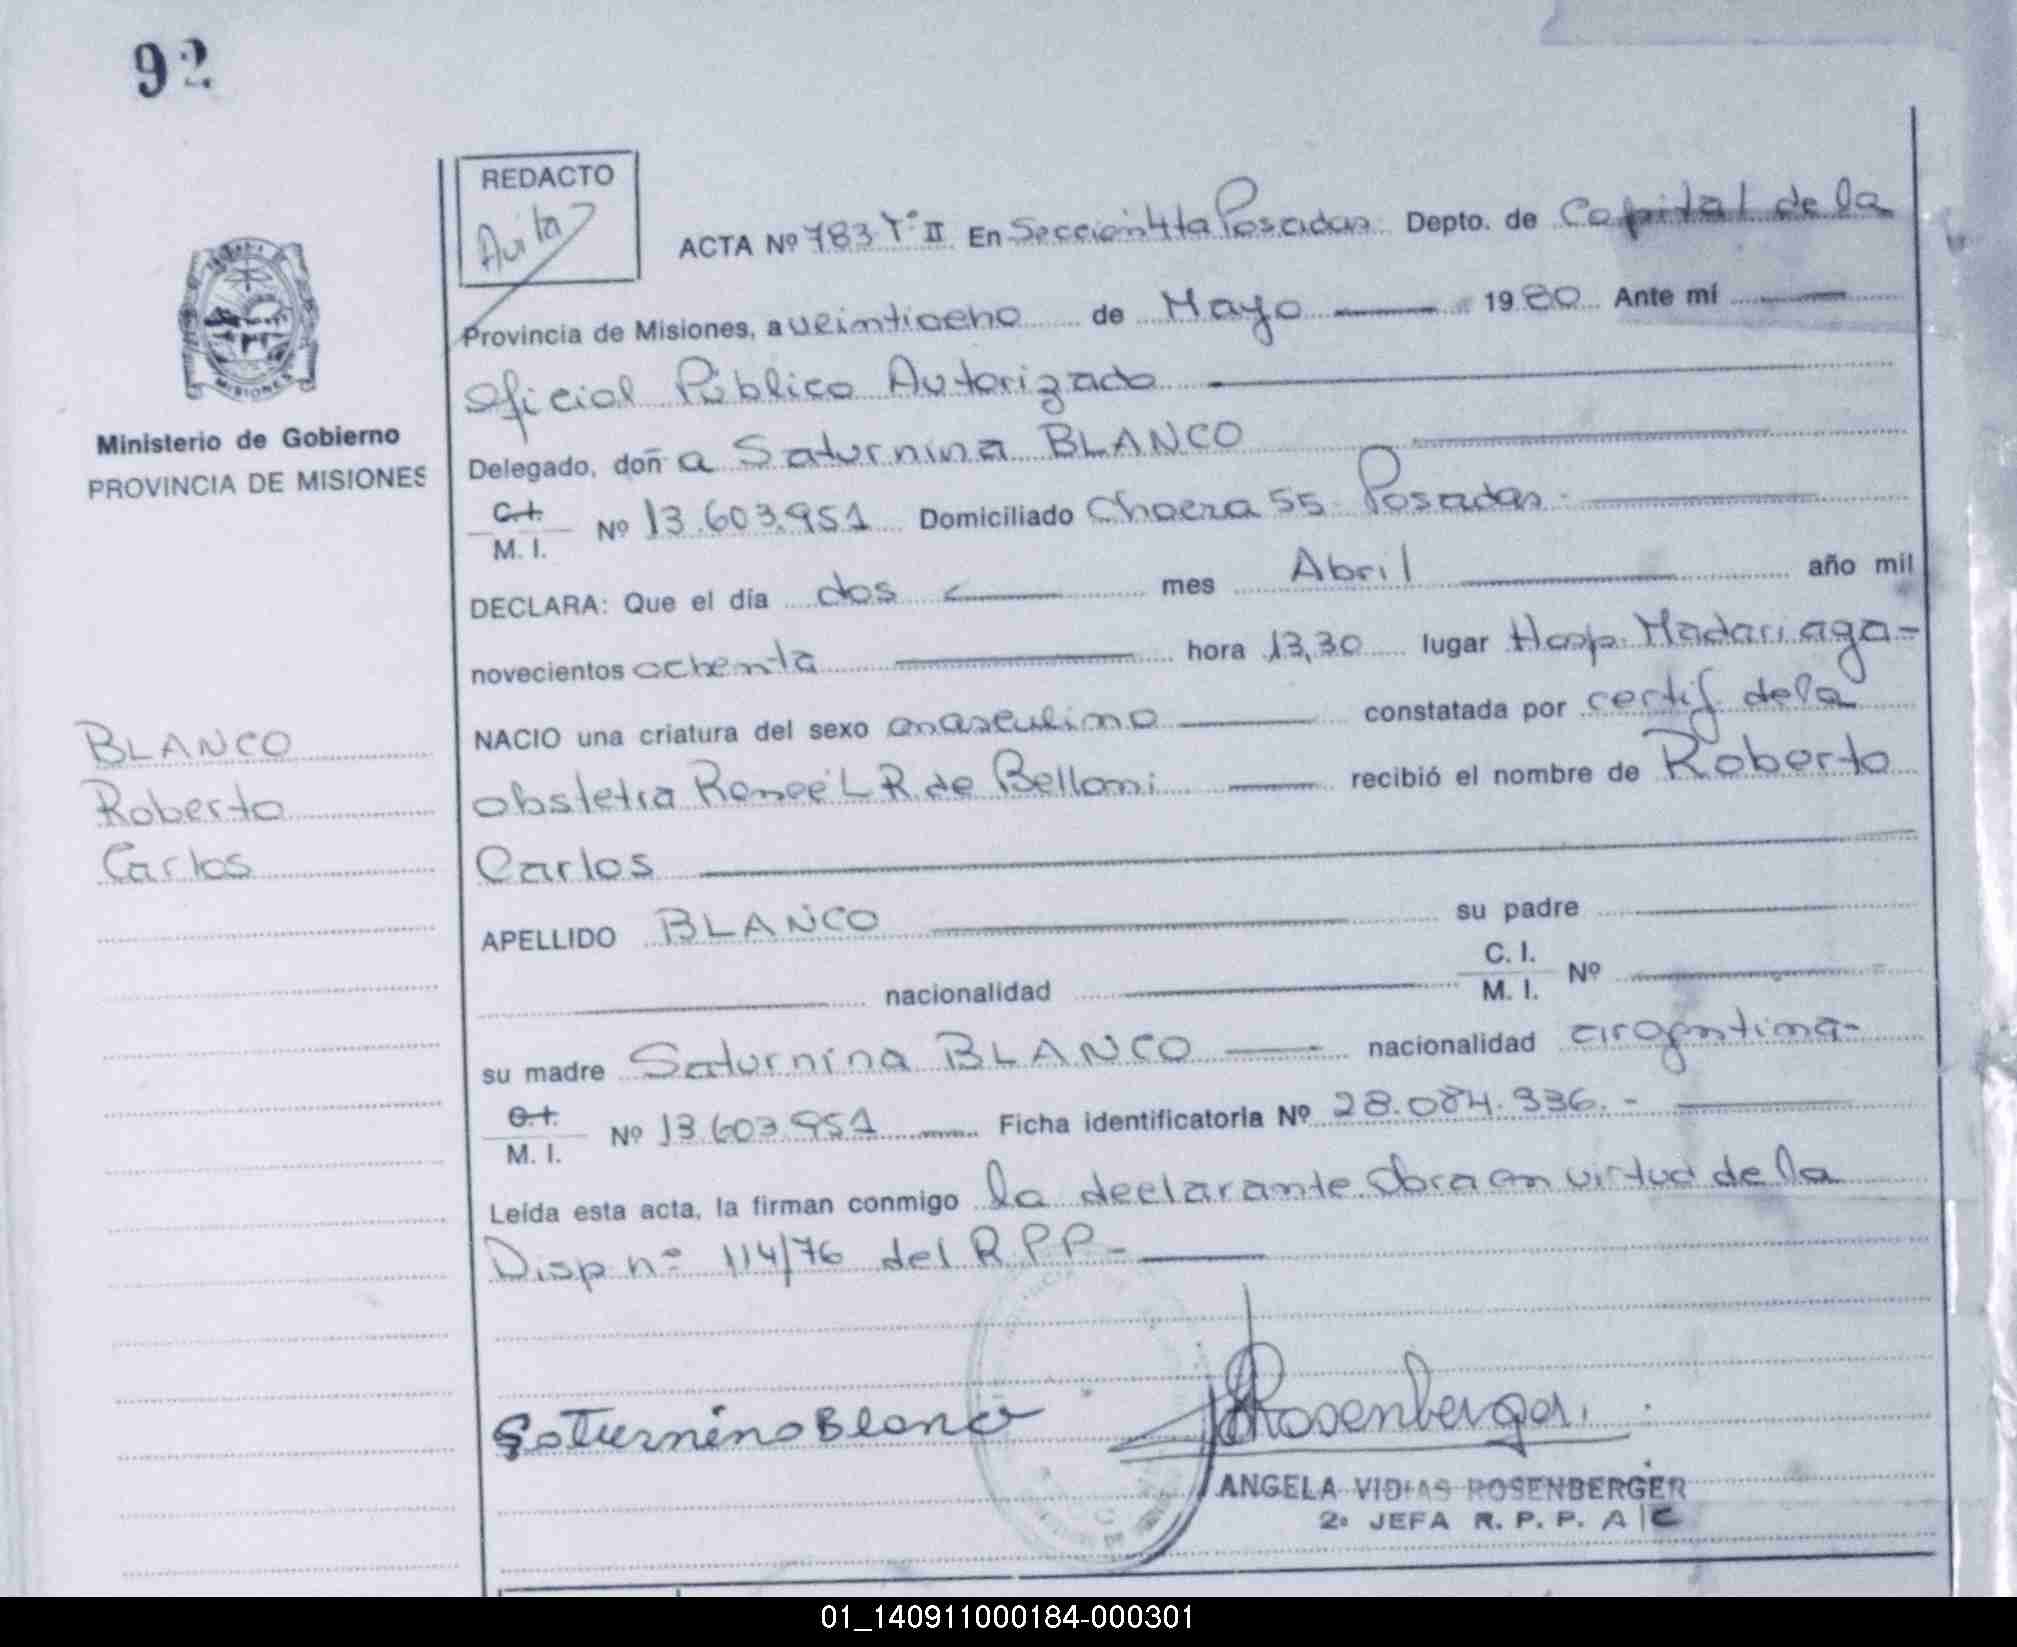 92
REDACTO
ACTA Nº 783 Tº II En Sección 4ta Posadas. Depto. de Capital de la
Provincia de Misiones, a veintiocho de Mayo 1980 Ante mí
Oficial Público Autorizado
MISIONES
Ministerio de Gobierno
PROVINCIA DE MISIONES
Delegado, doñ a Saturnina BLANCO
C.I.
M. I. Nº 13.603.951 Domiciliado Chacra 55 - Posadas -
DECLARA: Que el día dos mes Abril año mil
novecientos ochenta hora 13,30 lugar Hosp. Madariaga -
NACIO una criatura del sexo masculino constatada por certif de la
obstetra Renée L R. de Belloni recibió el nombre de Roberto
Carlos
BLANCO
Roberto
Carlos
APELLIDO BLANCO su padre
nacionalidad C. I.
M. I. Nº
su madre Saturnina BLANCO nacionalidad argentina -
C.I.
M. I. Nº 13.603.951 Ficha identificatoria Nº 28.084.336. -
Leída esta acta, la firman conmigo la declarante. Obra en virtud de la
Disp nº 114/76 del R.P.P. -
Saturnino Blanco
Rosenberger
ANGELA VIDIAS ROSENBERGER
2ª JEFA R. P. P. A/C
01_140911000184-000301